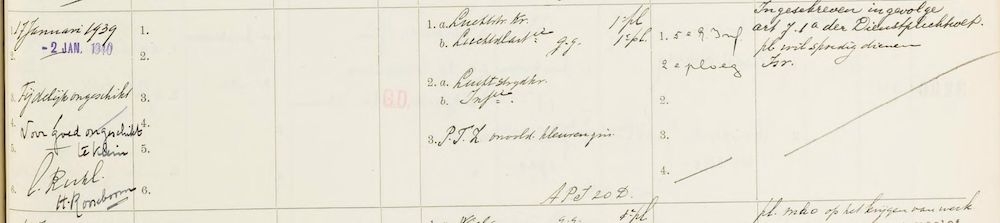 1. 17 Januari 1939
2. -2 JAN. 1940
3. Tijdelijk ongeschikt
4. Voor goed ongeschikt
5. te klein
6.
H. Rooseboom
1.
2.
3.
4.
5.
6.
G.D.
1. a. Luchtstr. kr. 1e pl.
b. Luchtd. art ie g.g. 1e pl.
2. a. Luchtstrijdkr.
b. Inf ie.
3. P.T.L onvold. kleurenzin
A P J 20 D.
1. 5e R Inf
2e ploeg
2.
3.
4.
Ingeschreven ingevolge
art 7. 1a der Dienstplichtwet.
pl. wil spoedig dienen
Isr.
1. a. g.g. pl.
pl. m.h.o. op het krijgen van werk